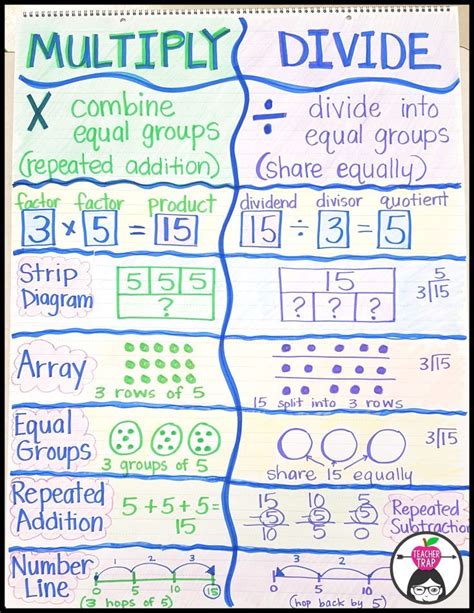 MULTIPLY DIVIDE
X combine equal groups (repeated addition)
÷ divide into equal groups (share equally)
factor factor product
3 x 5 = 15
dividend divisor quotient
15 ÷ 3 = 5
Strip Diagram
5 5 5
?
15
? ? ?
5
3)15
Array
3 rows of 5
15 split into 3 rows
3)15
Equal Groups
3 groups of 5
share 15 equally
3)15
Repeated Addition
5+5+5=
15
15 10 5
-5 -5 -5
10 5 0
Repeated Subtraction
Number Line
1 2 3
0 5 10 15
(3 hops of 5)
3 2 1
0 5 10
(hop back by 5)
TEACHER TRAP